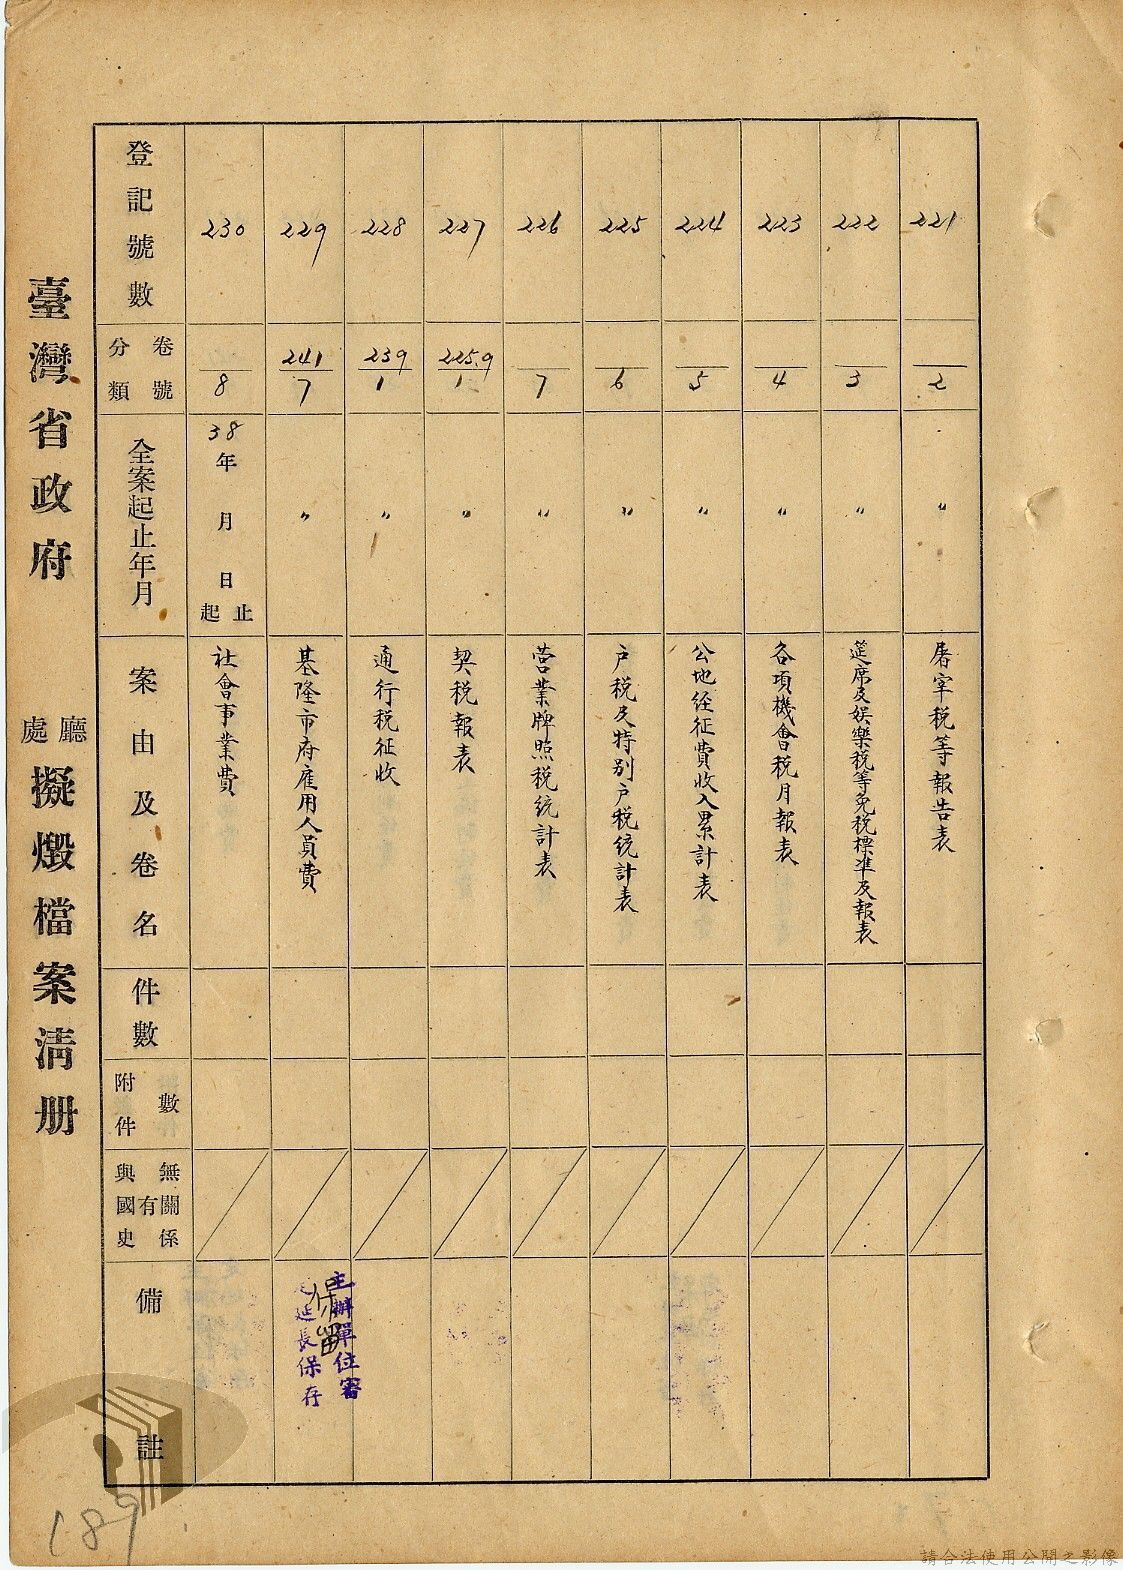 臺灣省政府 廳處擬燬檔案清册
登記號數
分類
卷號
全案起止年月
案由及卷名
件數
附件數
與國史有無關係
備註
230
8
38年 月 日起止
社會事業費
229
241
7
〃
基隆市府雇用人員費
主辦單位審
定延長保存
保留
228
239
1
〃
通行税征收
227
225.9
1
〃
契税報表
226
7
〃
营業牌照税統計表
225
6
〃
户税及特别户税統計表
224
5
〃
公地经征費收入累計表
223
4
〃
各項機會税月報表
222
3
〃
筵席及娱樂税等免税標准及報表
221
2
〃
屠宰税等報告表
189
請合法使用公開之影像